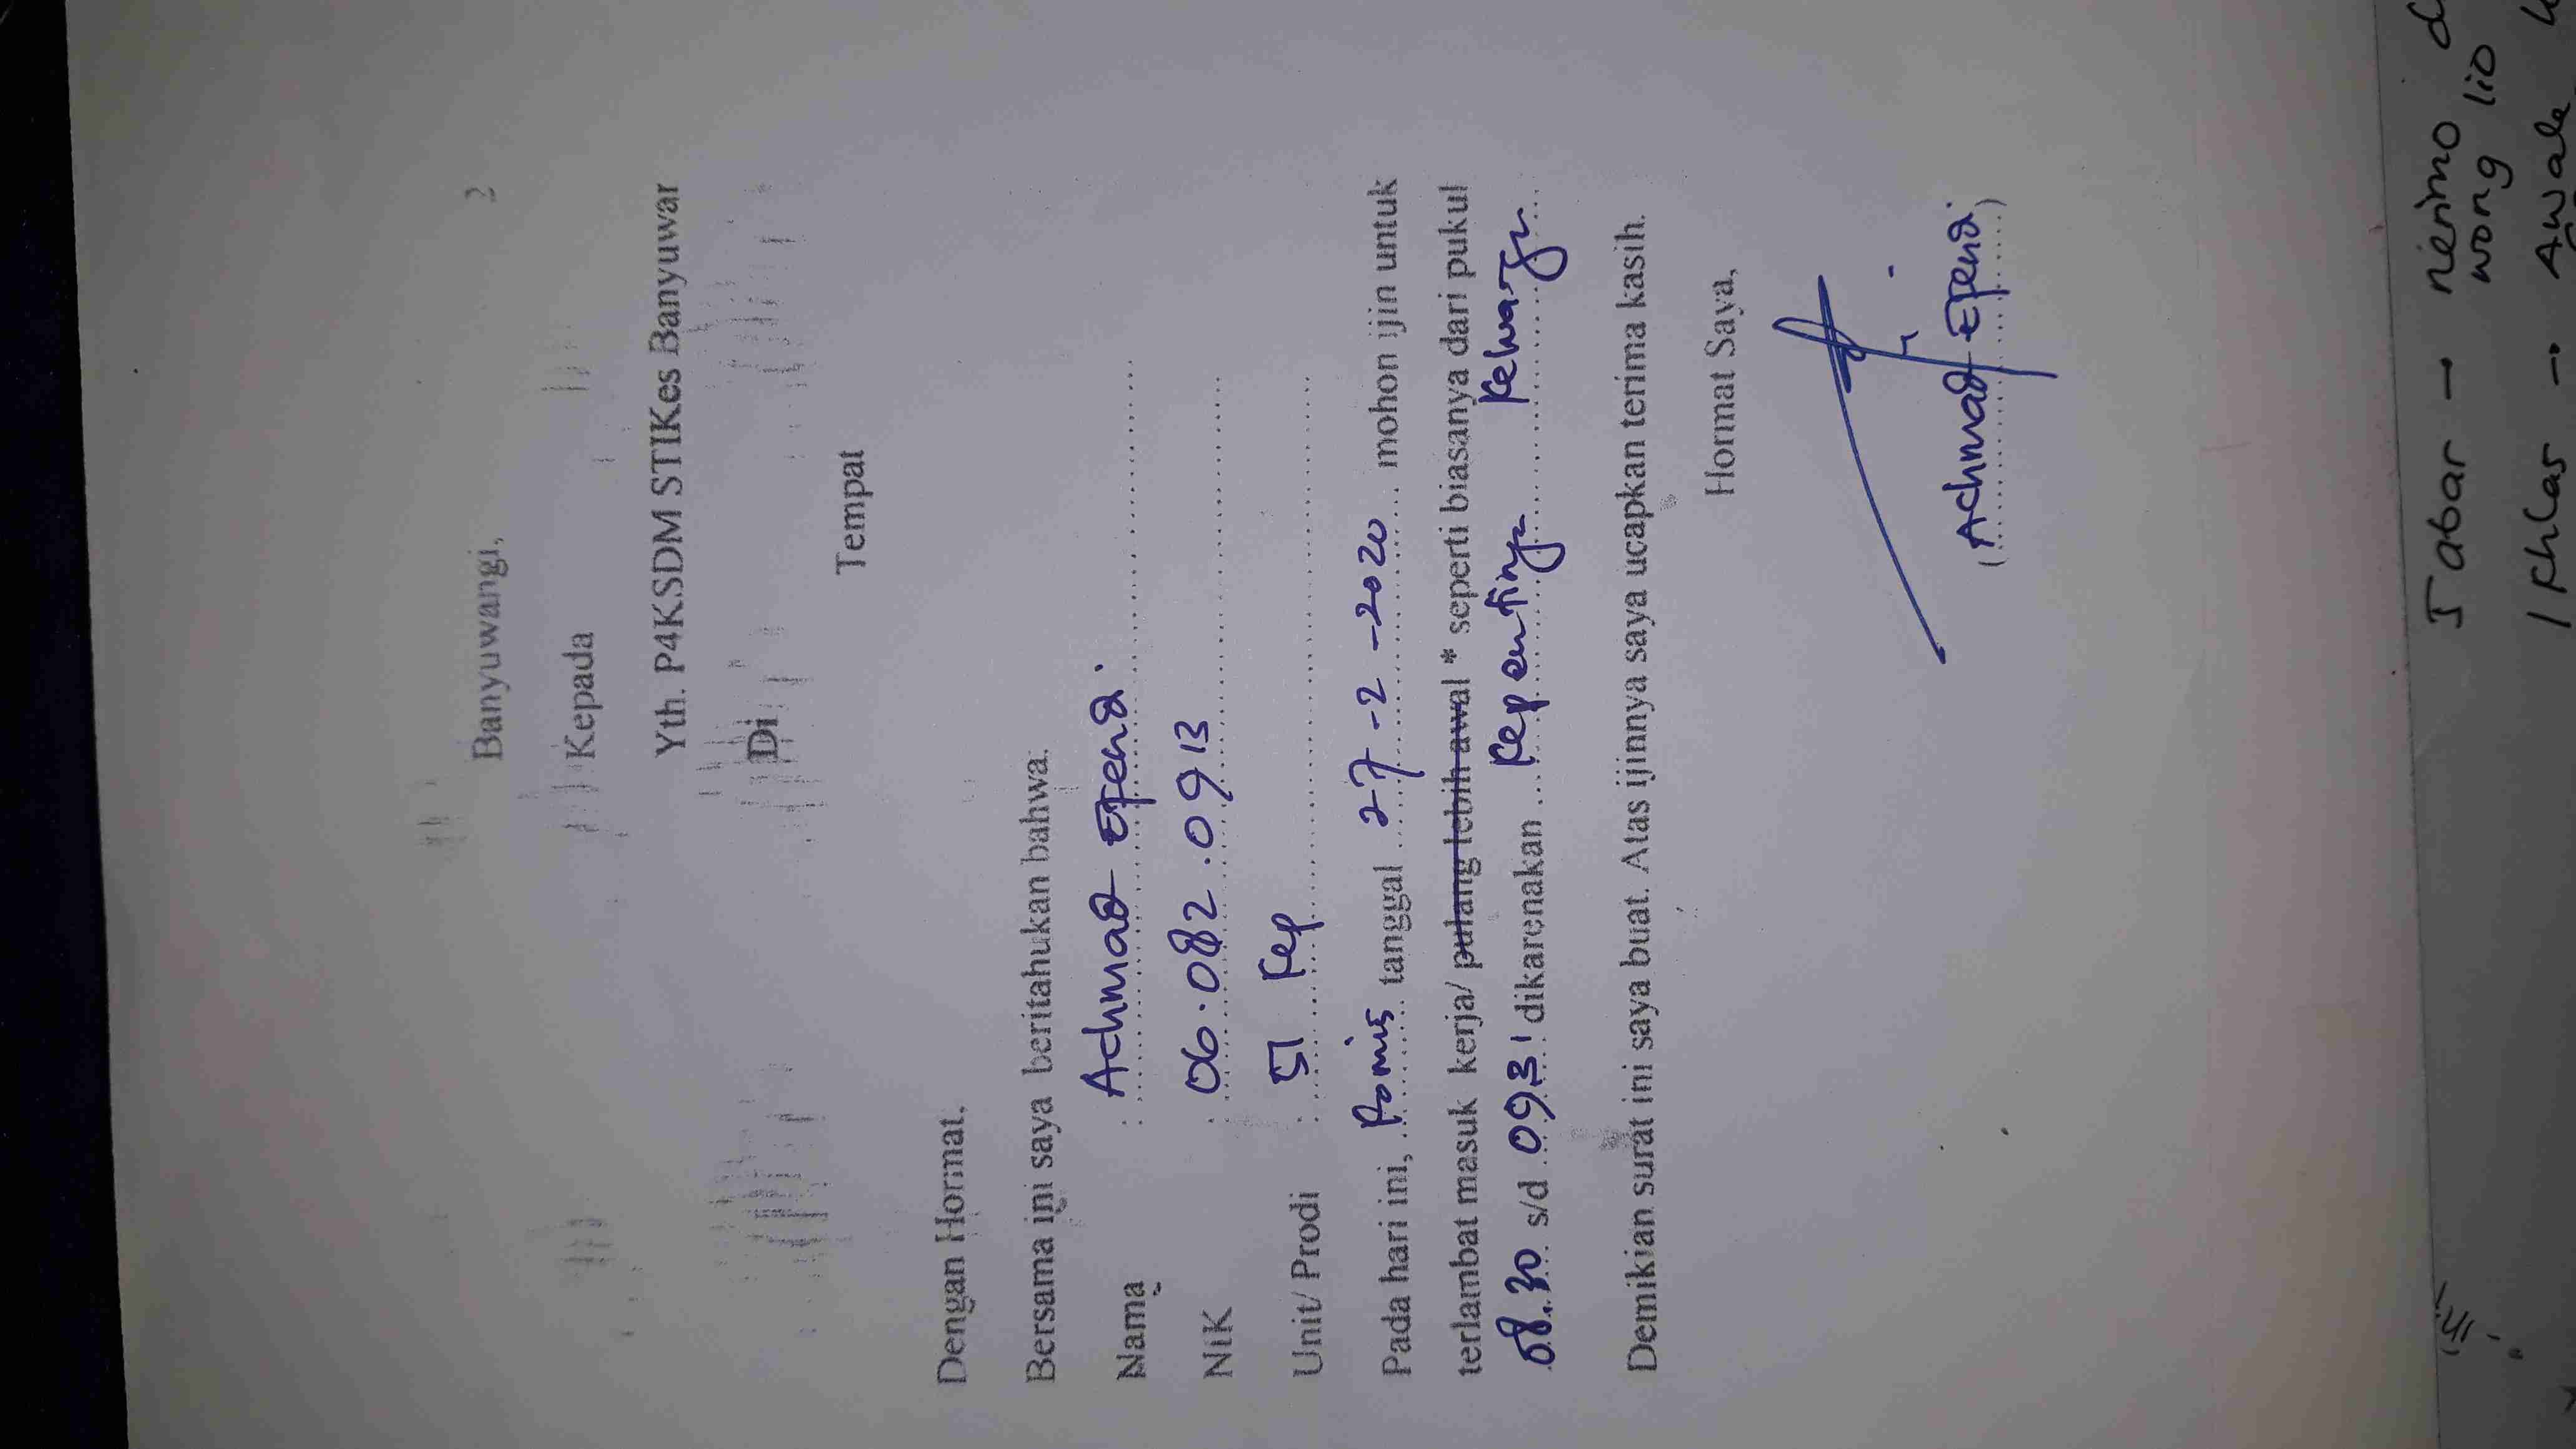 Banyuwangi, 2
Kepada
Yth. P4KSDM STIKes Banyuwar
Di
Tempat
Dengan Hormat,
Bersama ini saya beritahukan bahwa:
Nama : Achmad Efendi
NIK : 06.082.0913
Unit/ Prodi : S1 Kep
Pada hari ini, Kamis tanggal 27-2-2020 mohon ijin untuk
terlambat masuk kerja/ pulang lebih awal * seperti biasanya dari pukul
08.30 s/d dikarenakan Kepentingan Keluarga
Demikian surat ini saya buat. Atas ijinnya saya ucapkan terima kasih.
Hormat Saya,
(Achmad Efendi)
Sabar → nerimo
wong lio
Ikhlas → Awale